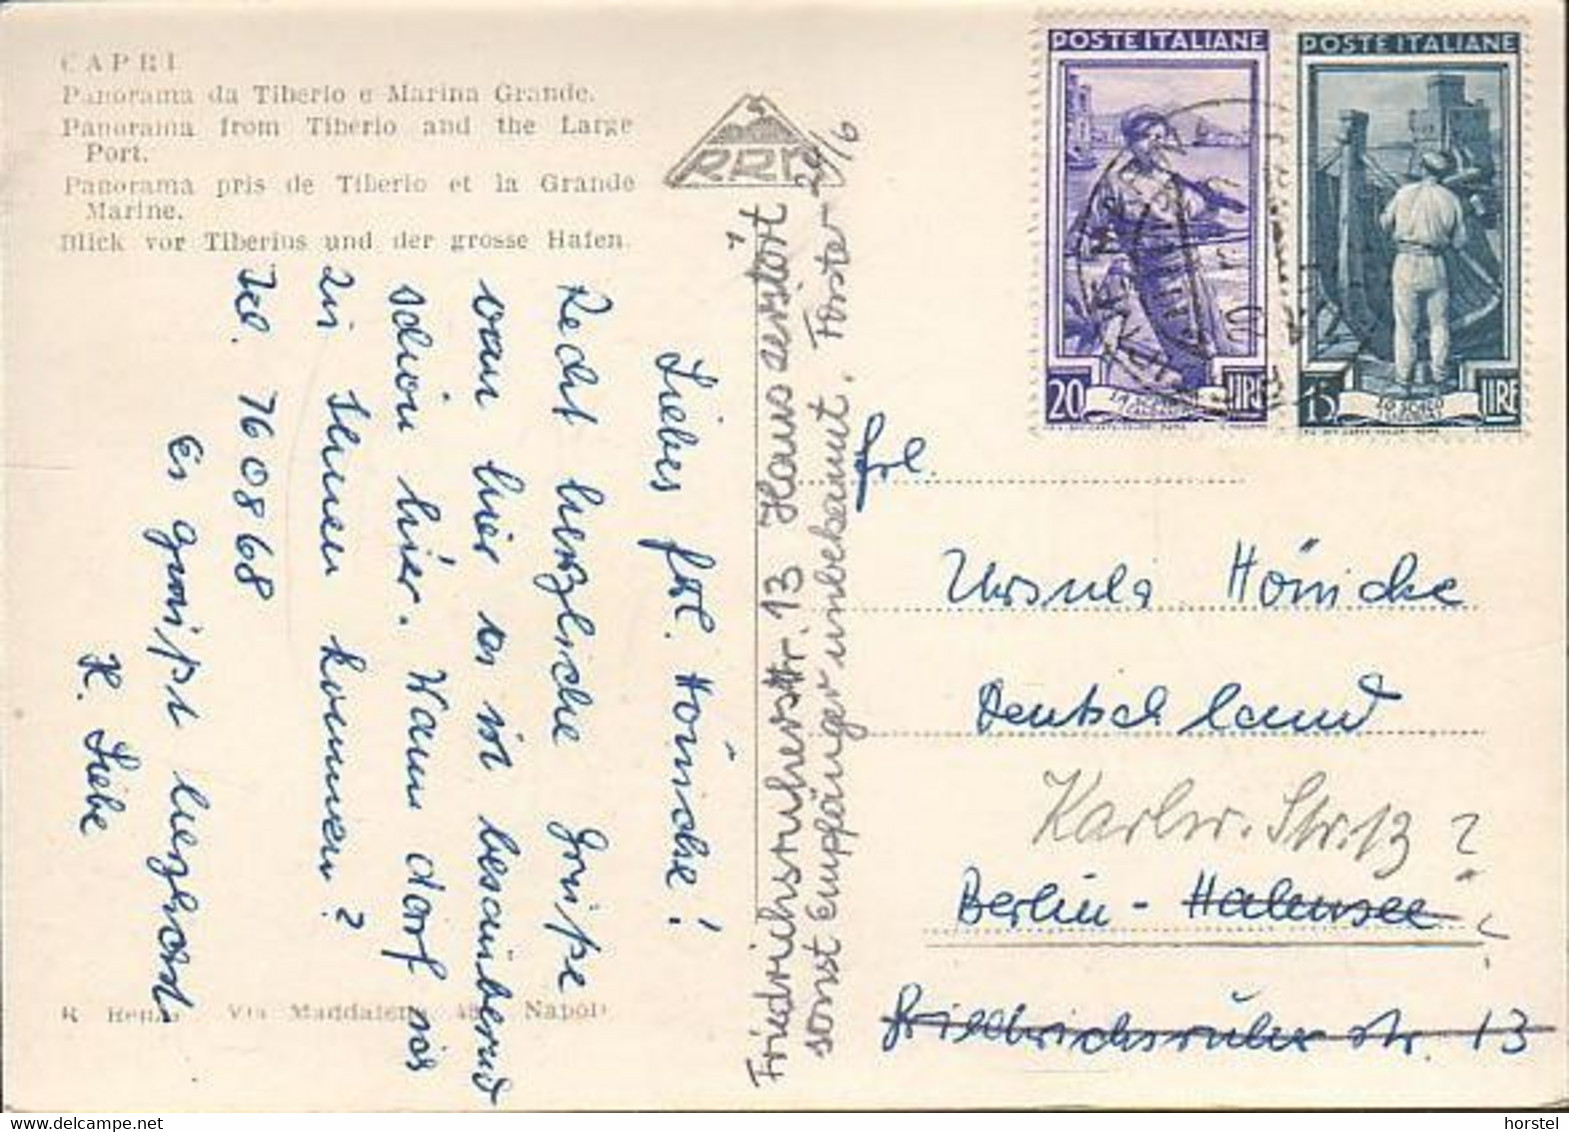 CAPRI
Panorama da Tiberio e Marina Grande.
Panorama from Tiberio and the Large
Port.
Panorama pris de Tiberio et la Grande
Marine.
Blick vor Tiberius und der grosse Hafen.
RRN
POSTE ITALIANE
20 LIRE
POSTE ITALIANE
15 LIRE
Liebes Frl. Hönicke!
Recht herzliche Grüße
von hier es ist bezaubernd
schön hier. Wann darf ich
zu Ihnen kommen?
Tel. 76 08 68
Es grüßt herzlichst
H. Liebe
Friedrichsruherstr. 13 Haus zerstört
sonst Empfänger unbekannt. Forster 24/6
Frl.
Ursula Hönicke
Deutschland
Karlsr. Str. 13 ?
Berlin - Halensee
Friedrichsruher Str. 13
Via Maddalena Napoli
horstel